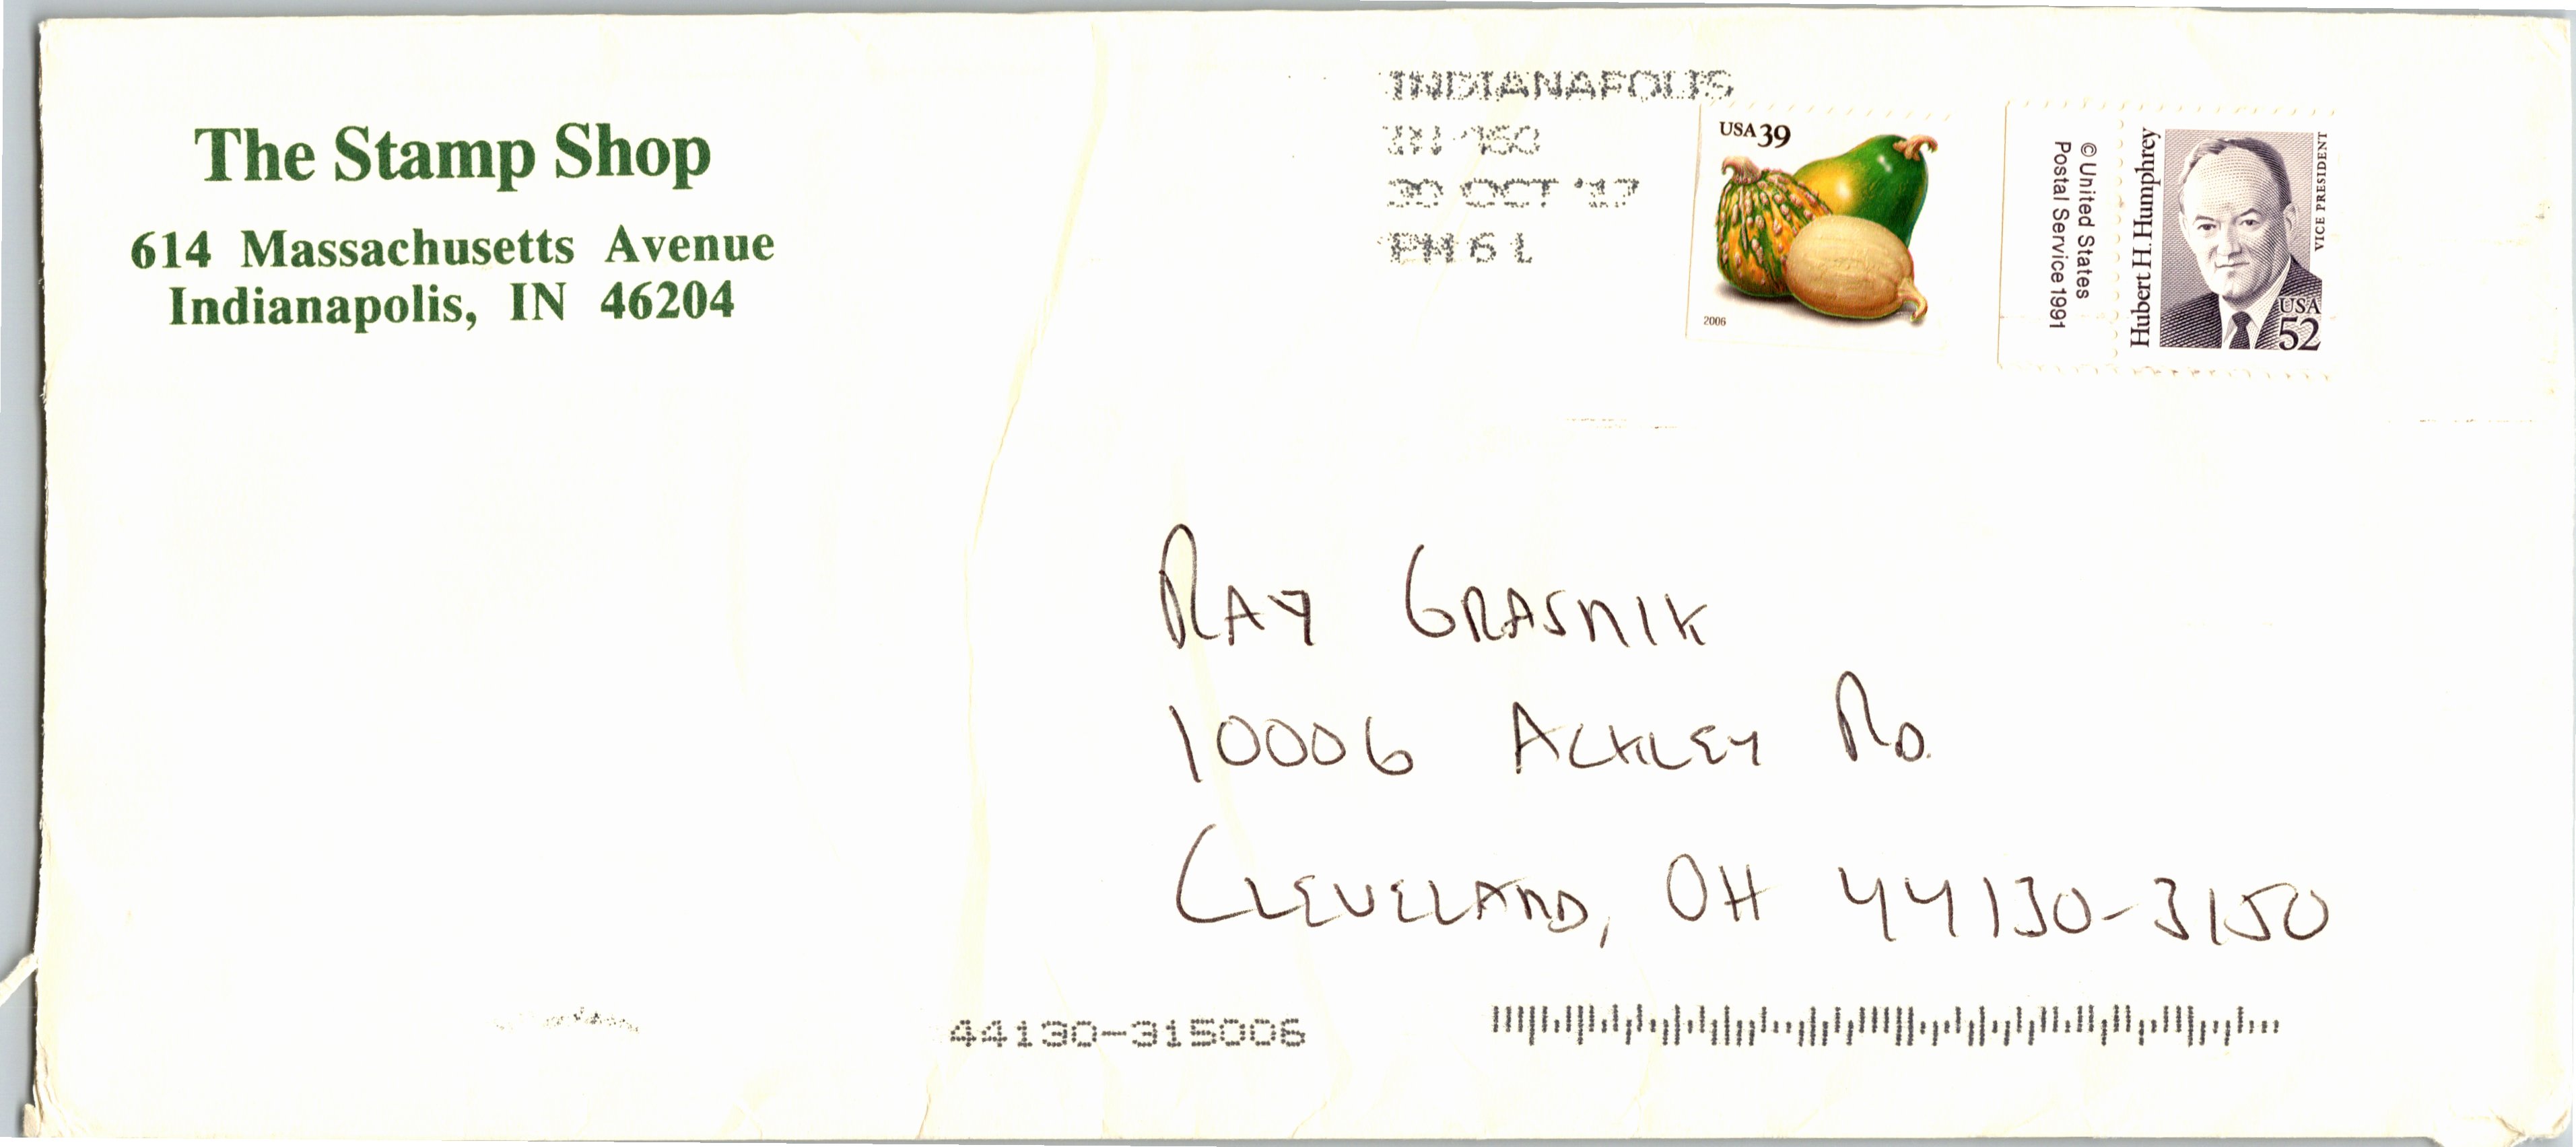 The Stamp Shop
614 Massachusetts Avenue
Indianapolis, IN 46204
INDIANAPOLIS
OCT '17
PM 6 L
USA 39
2006
© United States
Postal Service 1991
Hubert H. Humphrey
VICE PRESIDENT
USA
52
RAY GRASNIK
10006 ACKLEY RD.
CLEVELAND, OH 44130-3150
44130-315006